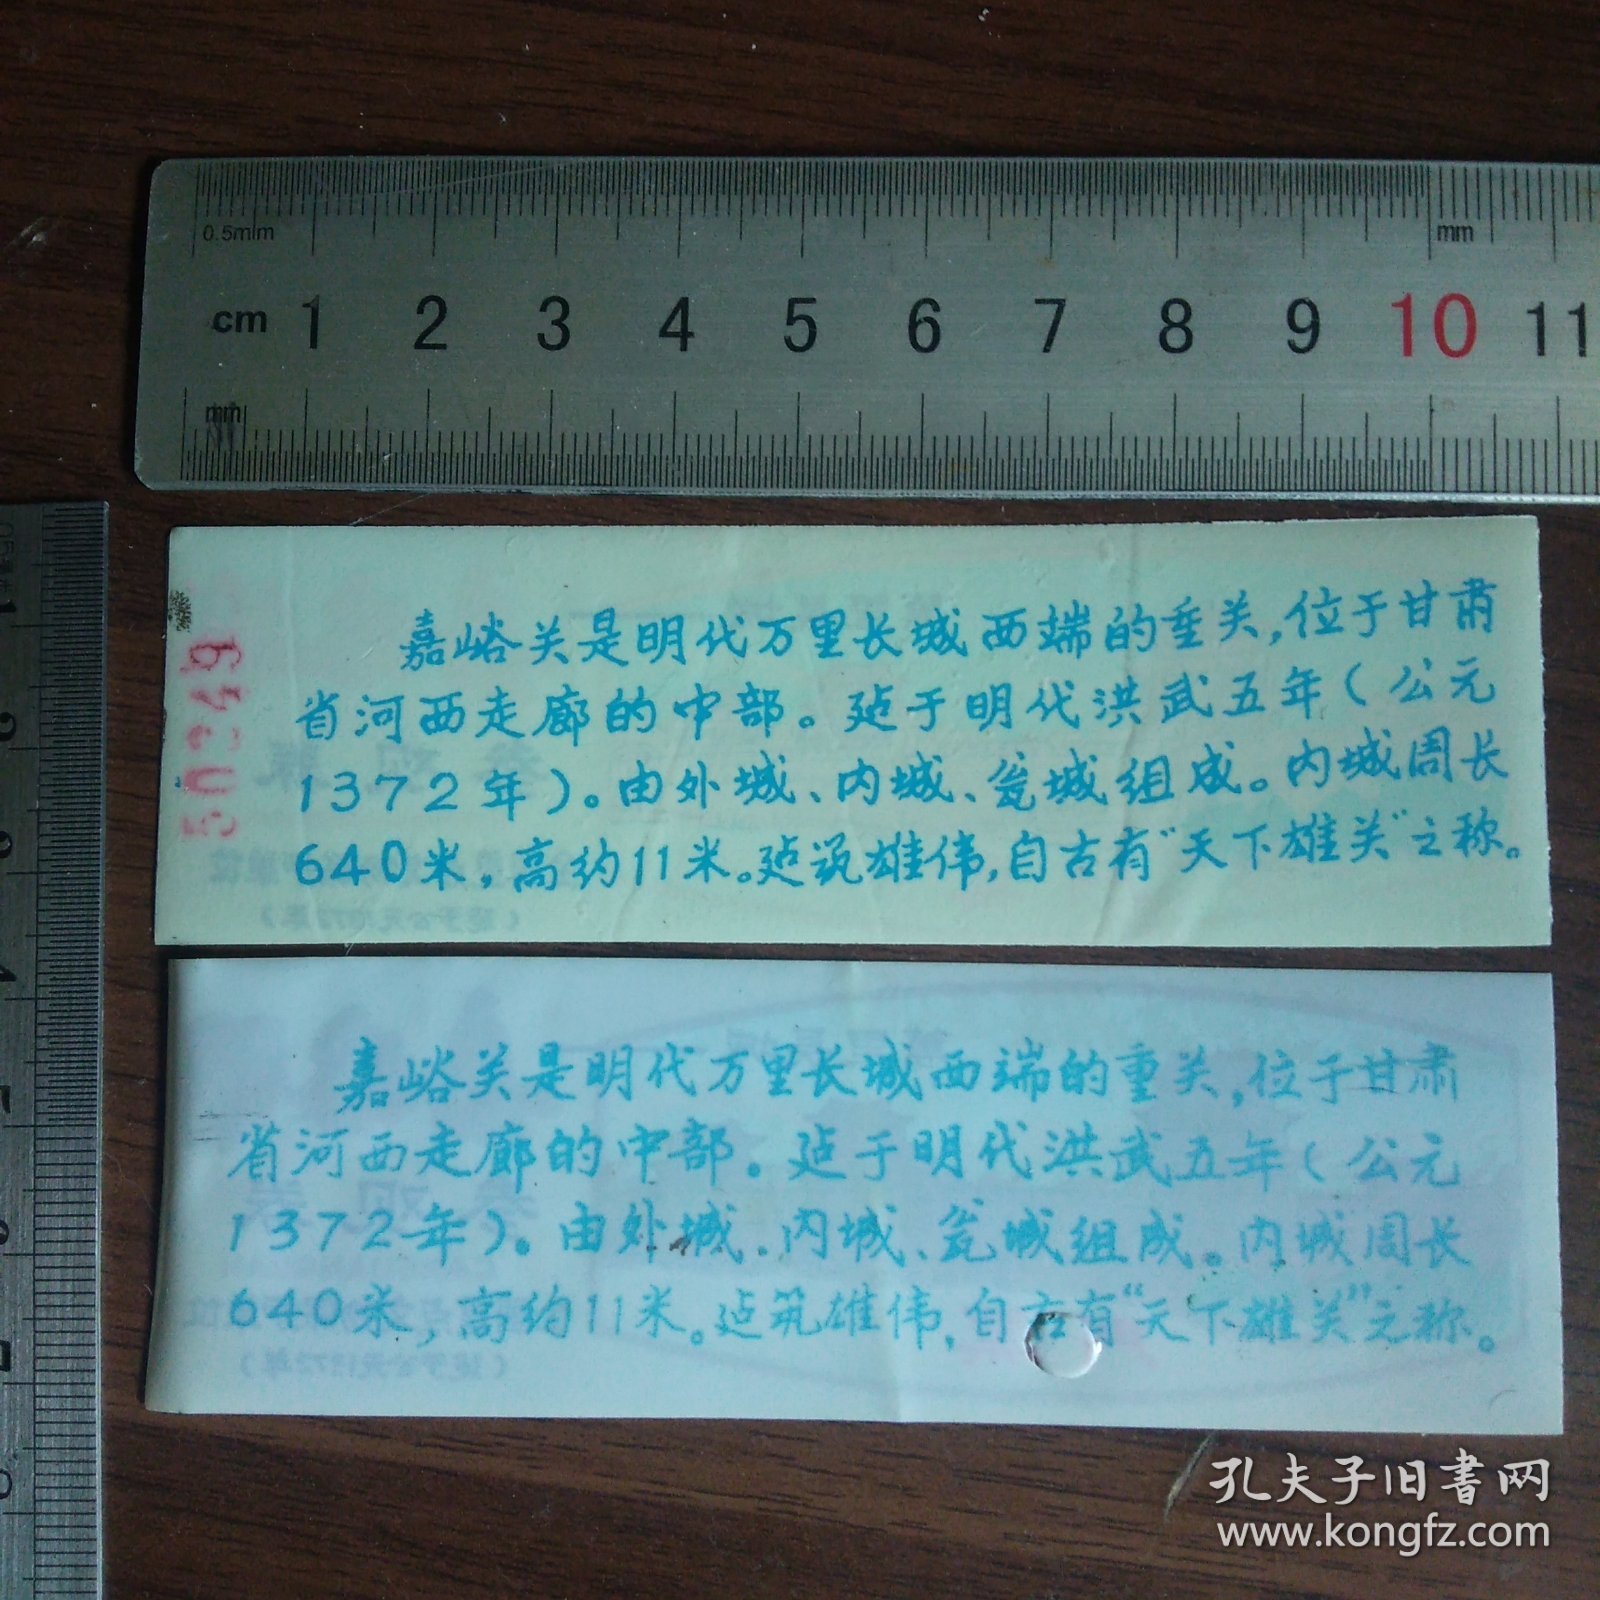 0.5mm
mm
cm 1 2 3 4 5 6 7 8 9 10 11
mm
嘉峪关是明代万里长城西端的重关,位于甘肃
省河西走廊的中部。建于明代洪武五年(公元
1372年)。由外城、内城、瓮城组成。内城周长
640米,高约11米。建筑雄伟,自古有“天下雄关”之称。
50249
嘉峪关是明代万里长城西端的重关,位于甘肃
省河西走廊的中部。建于明代洪武五年(公元
1372年)。由外城、内城、瓮城组成。内城周长
640米,高约11米。建筑雄伟,自古有“天下雄关”之称。
孔夫子旧书网
www.kongfz.com